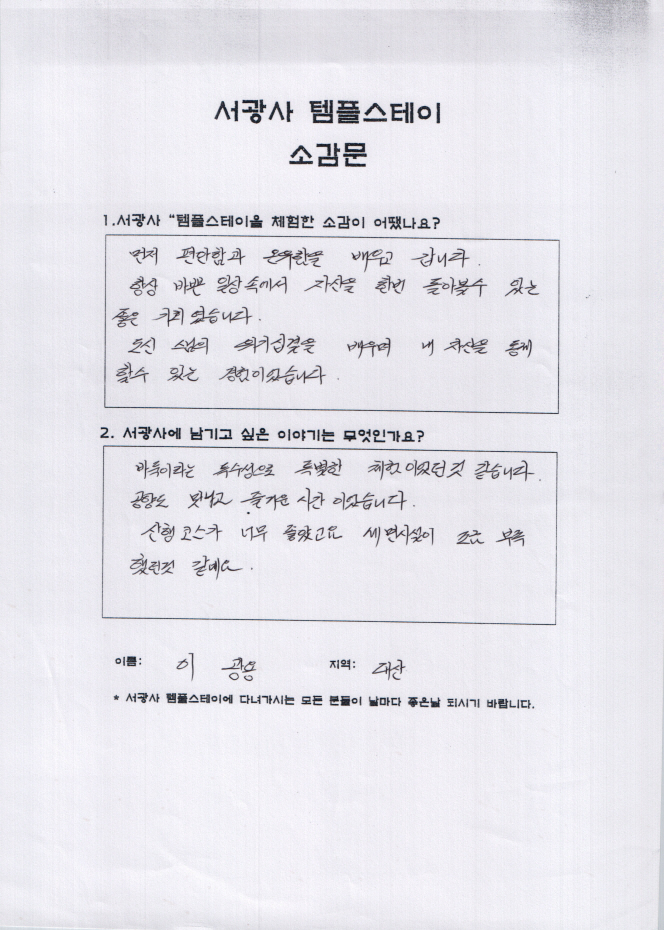 서광사 템플스테이
소감문
1.서광사 “템플스테이을 체험한 소감이 어땠나요?
먼저 편안함과 온유함을 배우고 갑니다.
항상 바쁜 일상속에서 자신을 한번 돌아볼수 있는
좋은 기회 였습니다.
도신 스님의 배우며 내 자신을 통제
할수 있는 경험이었습니다.
2. 서광사에 남기고 싶은 이야기는 무엇인가요?
바둑이라는 특수성으로 특별한 체험이었던것 같습니다.
공양도 맛나고 즐거운 시간 이었습니다.
산행코스가 너무 좋았고요 세면시설이 조금 부족
했던것 같네요.
이름: 이 광용 지역: 대산
* 서광사 템플스테이에 다녀가시는 모든 분들이 날마다 좋은날 되시기 바랍니다.